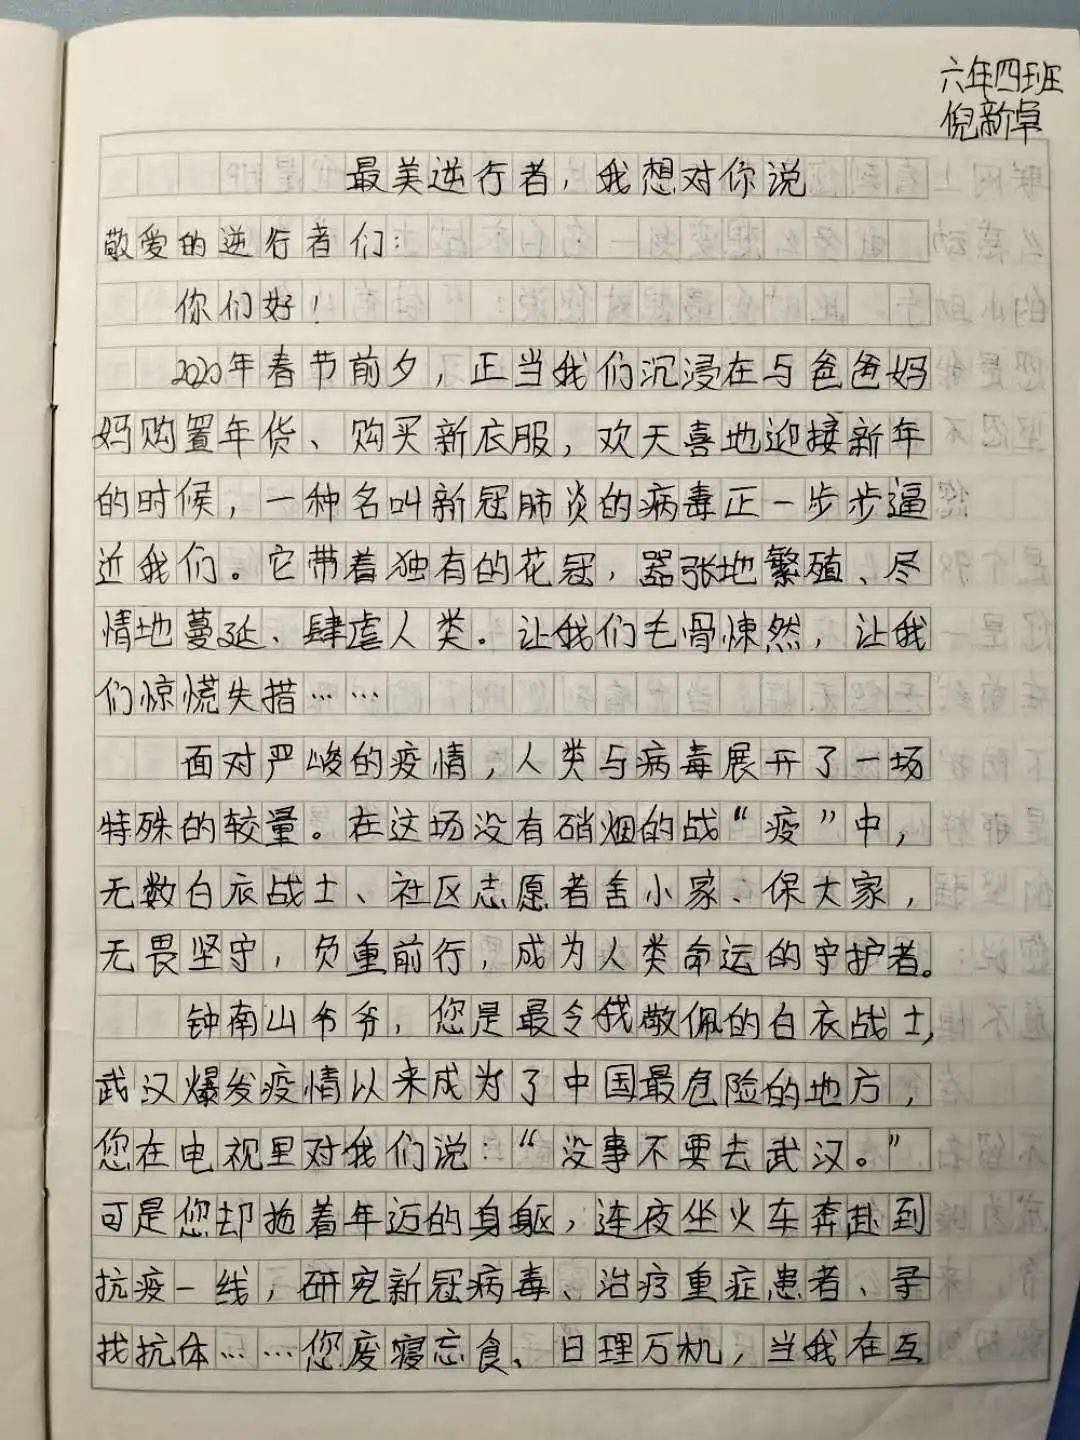 六年四班
倪新卓
最美逆行者，我想对你说
敬爱的逆行者们：
你们好！
2020年春节前夕，正当我们沉浸在与爸爸妈
妈购置年货、购买新衣服，欢天喜地迎接新年
的时候，一种名叫新冠肺炎的病毒正一步步逼
近我们。它带着独有的花冠，嚣张地繁殖、尽
情地蔓延、肆虐人类。让我们毛骨悚然，让我
们惊慌失措……
面对严峻的疫情，人类与病毒展开了一场
特殊的较量。在这场没有硝烟的战“疫”中，
无数白衣战士、社区志愿者舍小家、保大家，
无畏坚守，负重前行，成为人类命运的守护者。
钟南山爷爷，您是最令我敬佩的白衣战士，
武汉爆发疫情以来成为了中国最危险的地方，
您在电视里对我们说：“没事不要去武汉。”
可是您却拖着年迈的身躯，连夜坐火车奔赴到
抗疫一线，研究新冠病毒、治疗重症患者、寻
找抗体……您废寝忘食、日理万机，当我在互